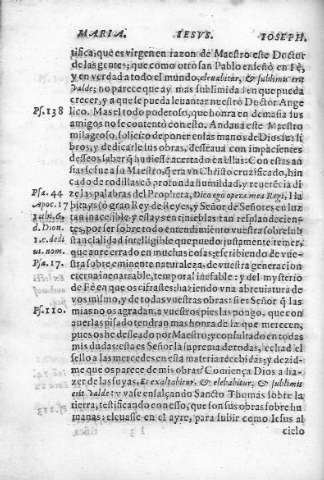 MARIA. IESVS. IOSEPH.
tifica, que es virgen en razon de Maestro este Doctor
de las gentes; que como otro san Pablo enseñò en Fè,
y en verdad a todo el mundo, elevabitur, & sublimis erit
valde; no parece que ay mas sublimidad en que pueda
crecer, y a que se pueda leuantar nuestro Doctor Ange
Ps. 138 lico. Mas el todo poderoso, que honra en demasia sus
amigos no se contentò con ello. Andaua este Maestro
milagroso solicito de poner en las manos de Dios sus li
bros, y dedicarle sus obras, desseaua con impacientes
desseos saber q̃ huuiesse acertado en ellas: Con estas an
sias se fue a su Maestro, q̃ era vn Christo crucificado, hin
cado de rodillas cõ profunda humildad, y reuerẽcia di
Psa. 44 ze las palabras del Propheta, Dico ego opera mea Regi, Ha
Apoc. 17 bita, ys ò gran Rey de Reyes, y Señor de Señores en luz
tan inaccessible, y estays en tinieblas tan resplandecien-
d. Dion. tes, por ser sobre todo entendimiento vuestra sobre subs
tancialidad intelligible que puedo justamente temer,
us nom. que aure errado en muchas cosas, escribiendo de vue-
Psa. 17. stra sobre eminente naturaleza, de vuestra generacion
eternal inenarrable, temporal inefable: y del mysterio
de Fè en que os cifrastes: haziendo vna abreuiatura de
vos mismo, y de todas vuestras obras: si es Señor q̃ las
Ps. 110. mias no os agradan, a vuestros pies las pongo, que con
auerlas pisado tendran mas honra de la que merecen,
pues os he desseado por Maestro, y consultado en todas
mis dudas: sea es Señor la suprema de todas, echad el
sello a las mercedes en esta materia recebidas, y dezid-
me que os parece de mis obras? Comiença Dios a ha-
zer de las suyas. Et exaltabitur, & eleuabitur, & sublimis
erit valde: y vase ensalçando Sancto Thomas sobre la
tierra, testificando con esso, que son sus obras sobre hu
manas: eleuase en el ayre, para subir como Iesus al
cielo